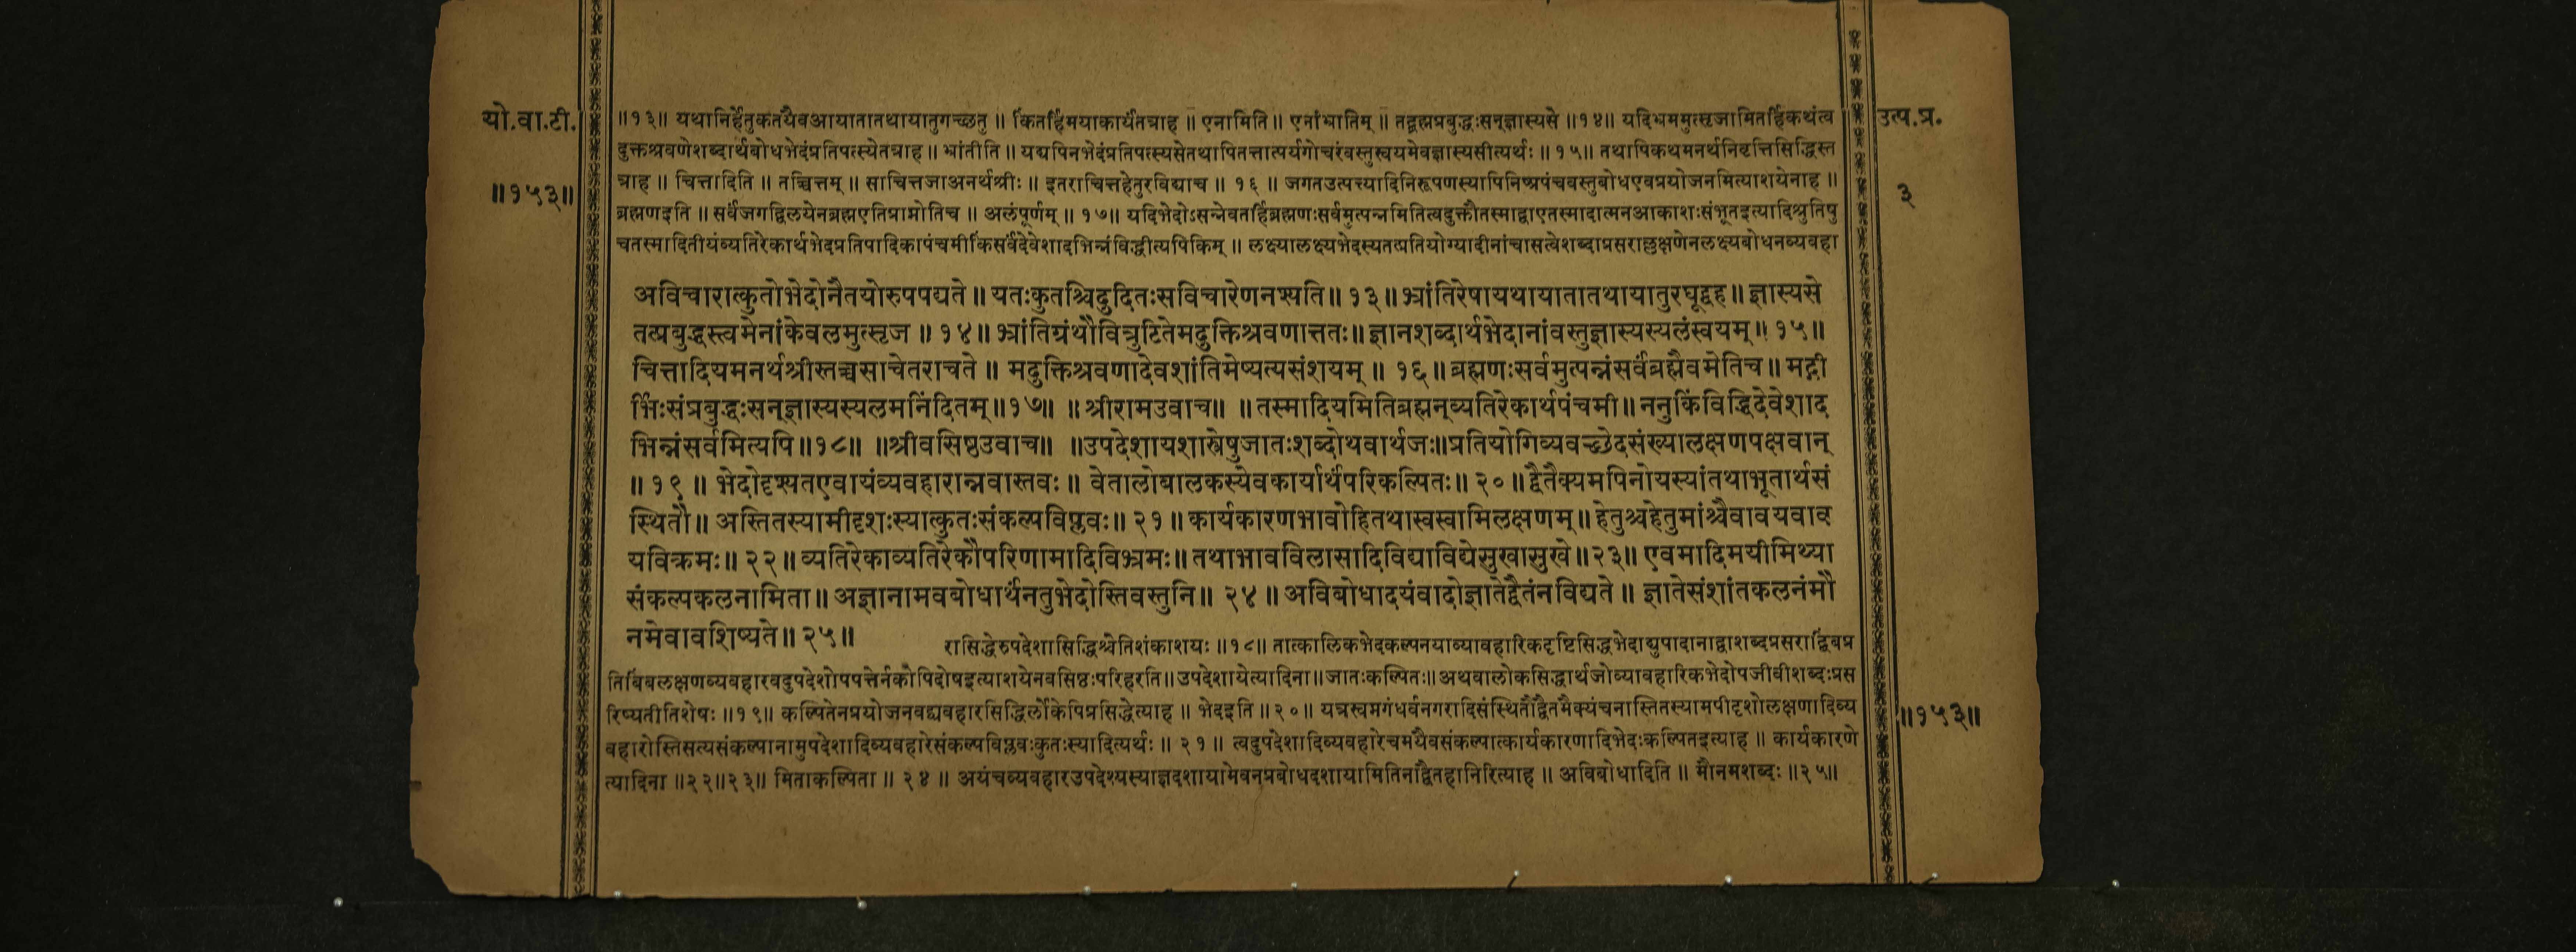 यो.वा.टी.
॥१५३॥
उत्प.प्र.
३
॥१३॥ यथानिर्हेतुकतयैवआयातातथायातुगच्छतु ॥ किंतर्हिमयाकार्यंतत्राह ॥ एनामिति॥ एनांभ्रांतिम् ॥ तद्ब्रह्मप्रबुद्धःसन्ज्ञास्यसे ॥१४॥ यदिभ्रममुत्सृजामितर्हिकथंत्व
दुक्तश्रवणेशब्दार्थबोधभेदंप्रतिपत्स्येतत्राह ॥ भ्रांतीति ॥ यद्यपिनभेदंप्रतिपत्स्यसेतथापितत्तात्पर्यगोचरंवस्तुस्वयमेवज्ञास्यसीत्यर्थः ॥ १५॥ तथापिकथमनर्थनिवृत्तिसिद्धिस्त
त्राह ॥ चित्तादिति ॥ तच्चित्तम् ॥ साचित्तजाअनर्थश्रीः ॥ इतराचित्तहेतुरविद्याच ॥ १६ ॥ जगतउत्पत्त्यादिनिरूपणस्यापिनिष्प्रपंचवस्तुबोधएवप्रयोजनमित्याशयेनाह ॥
ब्रह्मणइति ॥ सर्वजगद्विलयेनब्रह्मएतिप्राप्नोतिच ॥ अलंपूर्णम् ॥ १७॥ यदिभेदोऽसन्नेवतर्हिब्रह्मणःसर्वमुत्पन्नमितित्वदुक्तौतस्माद्वाएतस्मादात्मनआकाशःसंभूतइत्यादिश्रुतिषु
चतस्मादितीयंव्यतिरेकार्थभेदप्रतिपादिकापंचमीकिंसर्वंदेवेशादभिन्नंविद्धीत्यपिकिम् ॥ लक्ष्यालक्ष्यभेदस्यतत्प्रतियोग्यादीनांचासत्वेशब्दाप्रसराल्लक्षणेनलक्ष्यबोधनव्यवहा
अविचारात्कुतोभेदोनैतयोरुपपद्यते ॥ यतःकुतश्चिदुदितःसविचारेणनश्यति ॥ १३ ॥ भ्रांतिरेषायथायातातथायातुरघूद्वह ॥ ज्ञास्यसे
तत्प्रबुद्धस्त्वमेनांकेवलमुत्सृज ॥ १४ ॥ भ्रांतिग्रंथौवित्रुटितेमदुक्तिश्रवणात्ततः ॥ ज्ञानशब्दार्थभेदानांवस्तुज्ञास्यस्यलंस्वयम् ॥ १५ ॥
चित्तादियमनर्थश्रीस्तच्चसाचेतराचते ॥ मदुक्तिश्रवणादेवशांतिमेष्यत्यसंशयम् ॥ १६ ॥ ब्रह्मणःसर्वमुत्पन्नंसर्वंब्रह्मैवमेतिच ॥ मद्गी
र्भिःसंप्रबुद्धःसन्ज्ञास्यस्यलमनिंदितम् ॥१७॥ ॥ श्रीरामउवाच ॥ ॥ तस्मादियमितिब्रह्मन्व्यतिरेकार्थपंचमी ॥ ननुकिंविद्धिदेवेशाद
भिन्नंसर्वमित्यपि ॥१८॥ ॥श्रीवसिष्ठउवाच॥ ॥उपदेशायशास्त्रेषुजातःशब्दोथवार्थजः॥प्रतियोगिव्यवच्छेदसंख्यालक्षणपक्षवान्
॥ १९ ॥ भेदोदृश्यतएवायंव्यवहारान्नवास्तवः ॥ वेतालोबालकस्येवकार्यार्थंपरिकल्पितः ॥ २० ॥ द्वैतैक्यमपिनोयस्यांतथाभूतार्थसं
स्थितौ ॥ अस्तितस्यामीदृशःस्यात्कुतःसंकल्पविप्लवः ॥ २१ ॥ कार्यकारणभावोहितथास्वस्वामिलक्षणम् ॥ हेतुश्चहेतुमांश्चैवावयवाव
यविक्रमः ॥ २२ ॥ व्यतिरेकाव्यतिरेकौपरिणामादिविभ्रमः ॥ तथाभावविलासादिविद्याविद्येसुखासुखे ॥ २३ ॥ एवमादिमयीमिथ्या
संकल्पकलनामिता ॥ अज्ञानामवबोधार्थंनतुभेदोस्तिवस्तुनि ॥ २४ ॥ अविबोधादयंवादोज्ञातेद्वैतंनविद्यते ॥ ज्ञातेसंशांतकलनंमौ
नमेवावशिष्यते ॥ २५ ॥
रासिद्धेरुपदेशासिद्धिश्चेतिशंकाशयः ॥१८॥ तात्कालिकभेदकल्पनयाव्यावहारिकदृष्टिसिद्धभेदाद्युपादानाद्वाशब्दप्रसराद्बिंबप्र
तिबिंबलक्षणव्यवहारवदुपदेशोपपत्तेर्नकोपिदोषइत्याशयेनवसिष्ठःपरिहरति॥उपदेशायेत्यादिना॥जातःकल्पितः॥अथवालोकसिद्धार्थजोव्यावहारिकभेदोपजीवीशब्दःप्रस
रिष्यतीतिशेषः ॥१९॥ कल्पितेनप्रयोजनवद्व्यवहारसिद्धिर्लोकेपिप्रसिद्धेत्याह ॥ भेदइति ॥२०॥ यत्रस्वप्नगंधर्वनगरादिसंस्थितौद्वैतमैक्यंचनास्तितस्यामपीदृशोलक्षणादिव्य
वहारोस्तिसत्यसंकल्पानामुपदेशादिव्यवहारेसंकल्पविप्लवःकुतःस्यादित्यर्थः ॥ २१ ॥ त्वदुपदेशादिव्यवहारेचमयैवसंकल्पात्कार्यकारणादिभेदःकल्पितइत्याह ॥ कार्यकारणे
त्यादिना ॥२२॥२३॥ मिताकल्पिता ॥ २४ ॥ अयंचव्यवहारउपदेश्यस्याज्ञदशायामेवनप्रबोधदशायामितिनाद्वैतहानिरित्याह ॥ अविबोधादिति ॥ मौनमशब्दः ॥२५॥
॥१५३॥